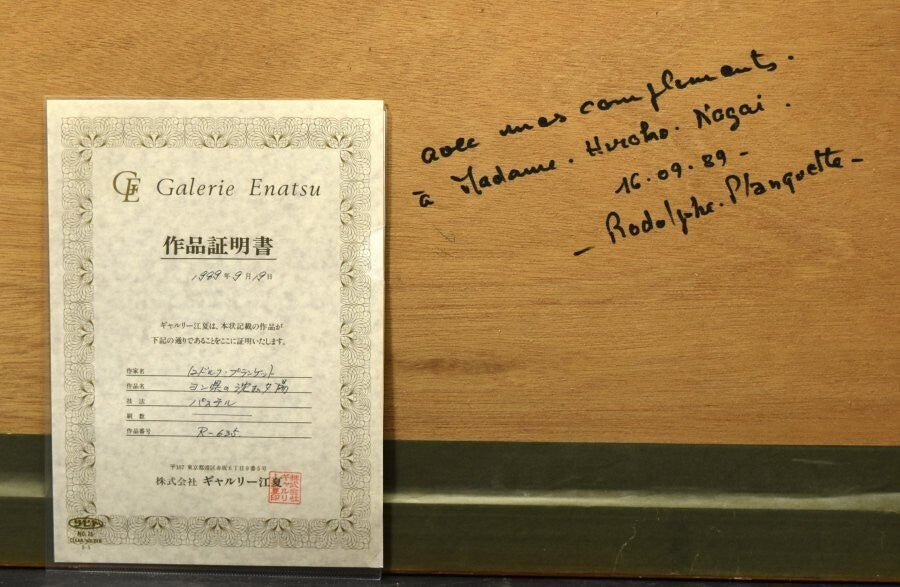 GE Galerie Enatsu
作品証明書
1989年9月19日
ギャルリー江夏は、本状記載の作品が
下記の通りであることをここに証明いたします。
作家名 ロドルフ・プランケット
作品名 ヨンヌ県の沈む夕陽
技法 パステル
刷数
作品番号 R-635
〒107 東京都港区赤坂6丁目9番5号
株式会社 ギャルリー江夏
NO.75
CLEAR HOLDER
avec mes compliments.
à Madame. Hiroko. Nagai.
16.09.89 -
- Rodolphe. Planquette -